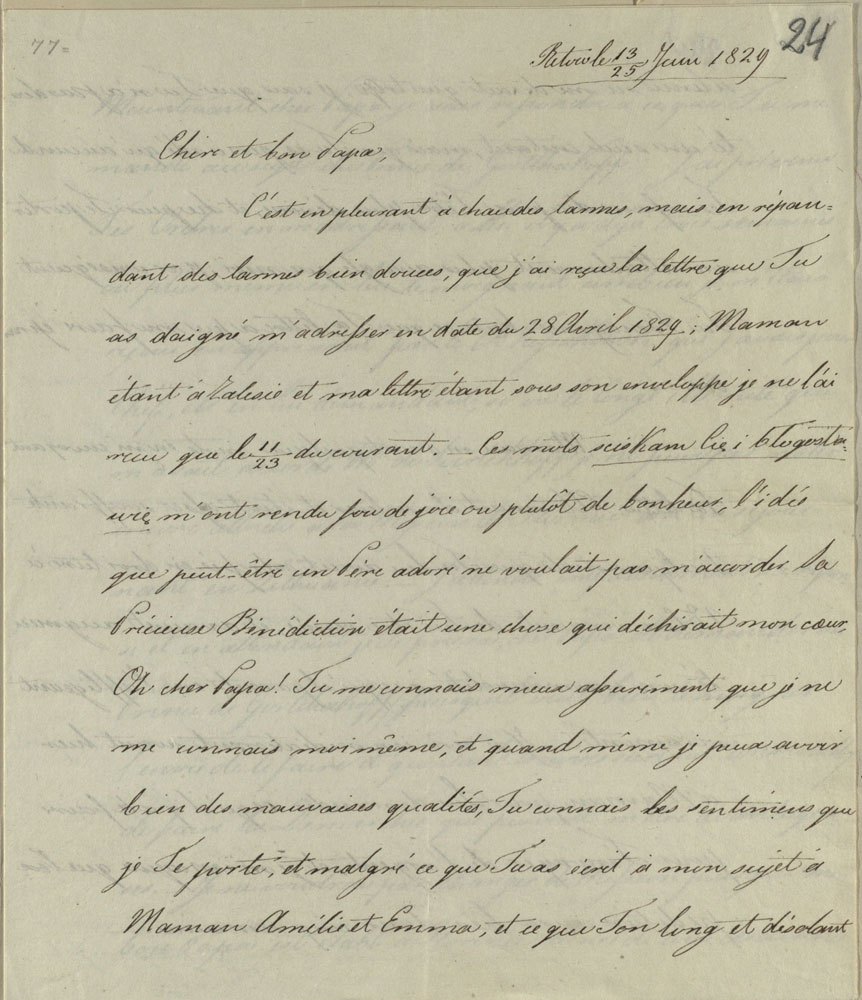 77=
24
Retow le 13/25 Juin 1829
Cher et bon Papa,
C'est en pleurant à chaudes larmes, mais en répan=
dant des larmes bien douces, que j'ai reçu la lettre que Tu
as daigné m'adresser en date du 28 Avril 1829; Maman
étant à Zalesie et ma lettre étant sous son enveloppe je ne l'ai
reçu que le 11/23 du courant. _ Ces mots sciskam Cię i błogosła=
wię m'ont rendu fou de joie ou plutôt de bonheur, l'idée
que peut-être un Père adoré ne voulait pas m'accorder Sa
Précieuse Bénédiction était une chose qui déchirait mon cœur,
Oh cher Papa! Tu me connais mieux assurément que je ne
me connais moi même, et quand même je peux avoir
bien des mauvaises qualités, Tu connais les sentimens que
je Te porte, et malgré ce que Tu as écrit à mon sujet à
Maman Amélie et Emma, et ce que Ton long et désolant